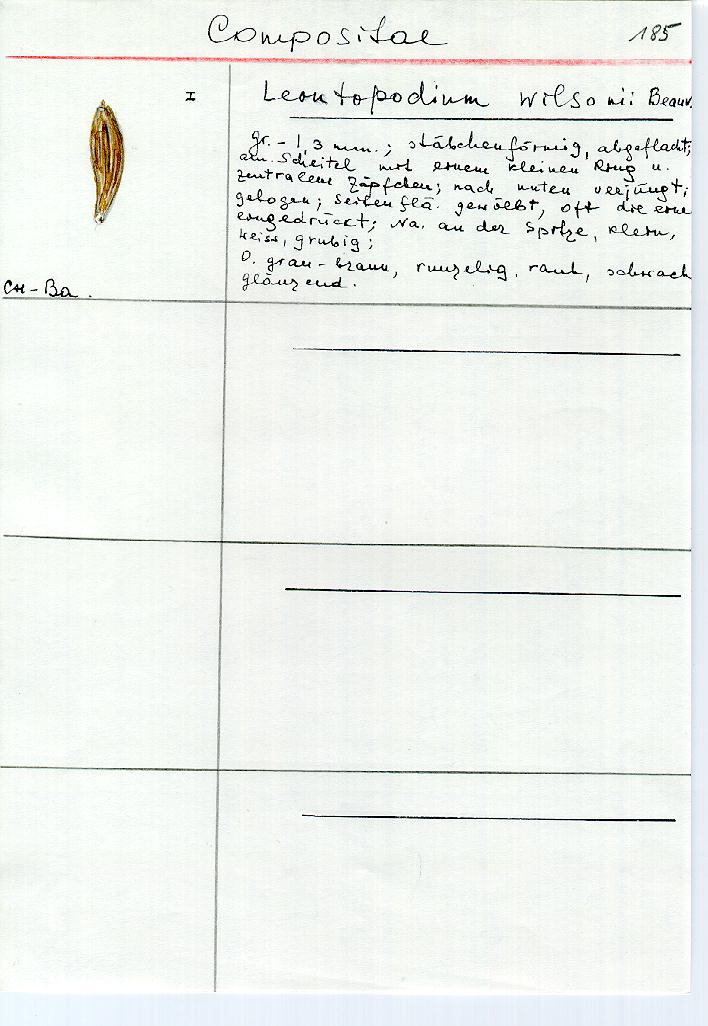 Compositae 185
I Leontopodium wilsonii Beauv.
gr. - 1,3 mm.; stäbchenförmig, abgeflacht;
am Scheitel mit einem kleinen Ring u.
zentralem Zäpfchen; nach unten verjüngt;
gebogen; Seitenflä. gewölbt, oft die eine
eingedrückt; Na. an der Spitze, klein,
weiss, grubig;
O. grau-braun, runzelig, rauh, schwach
glänzend.
CH-Ba.